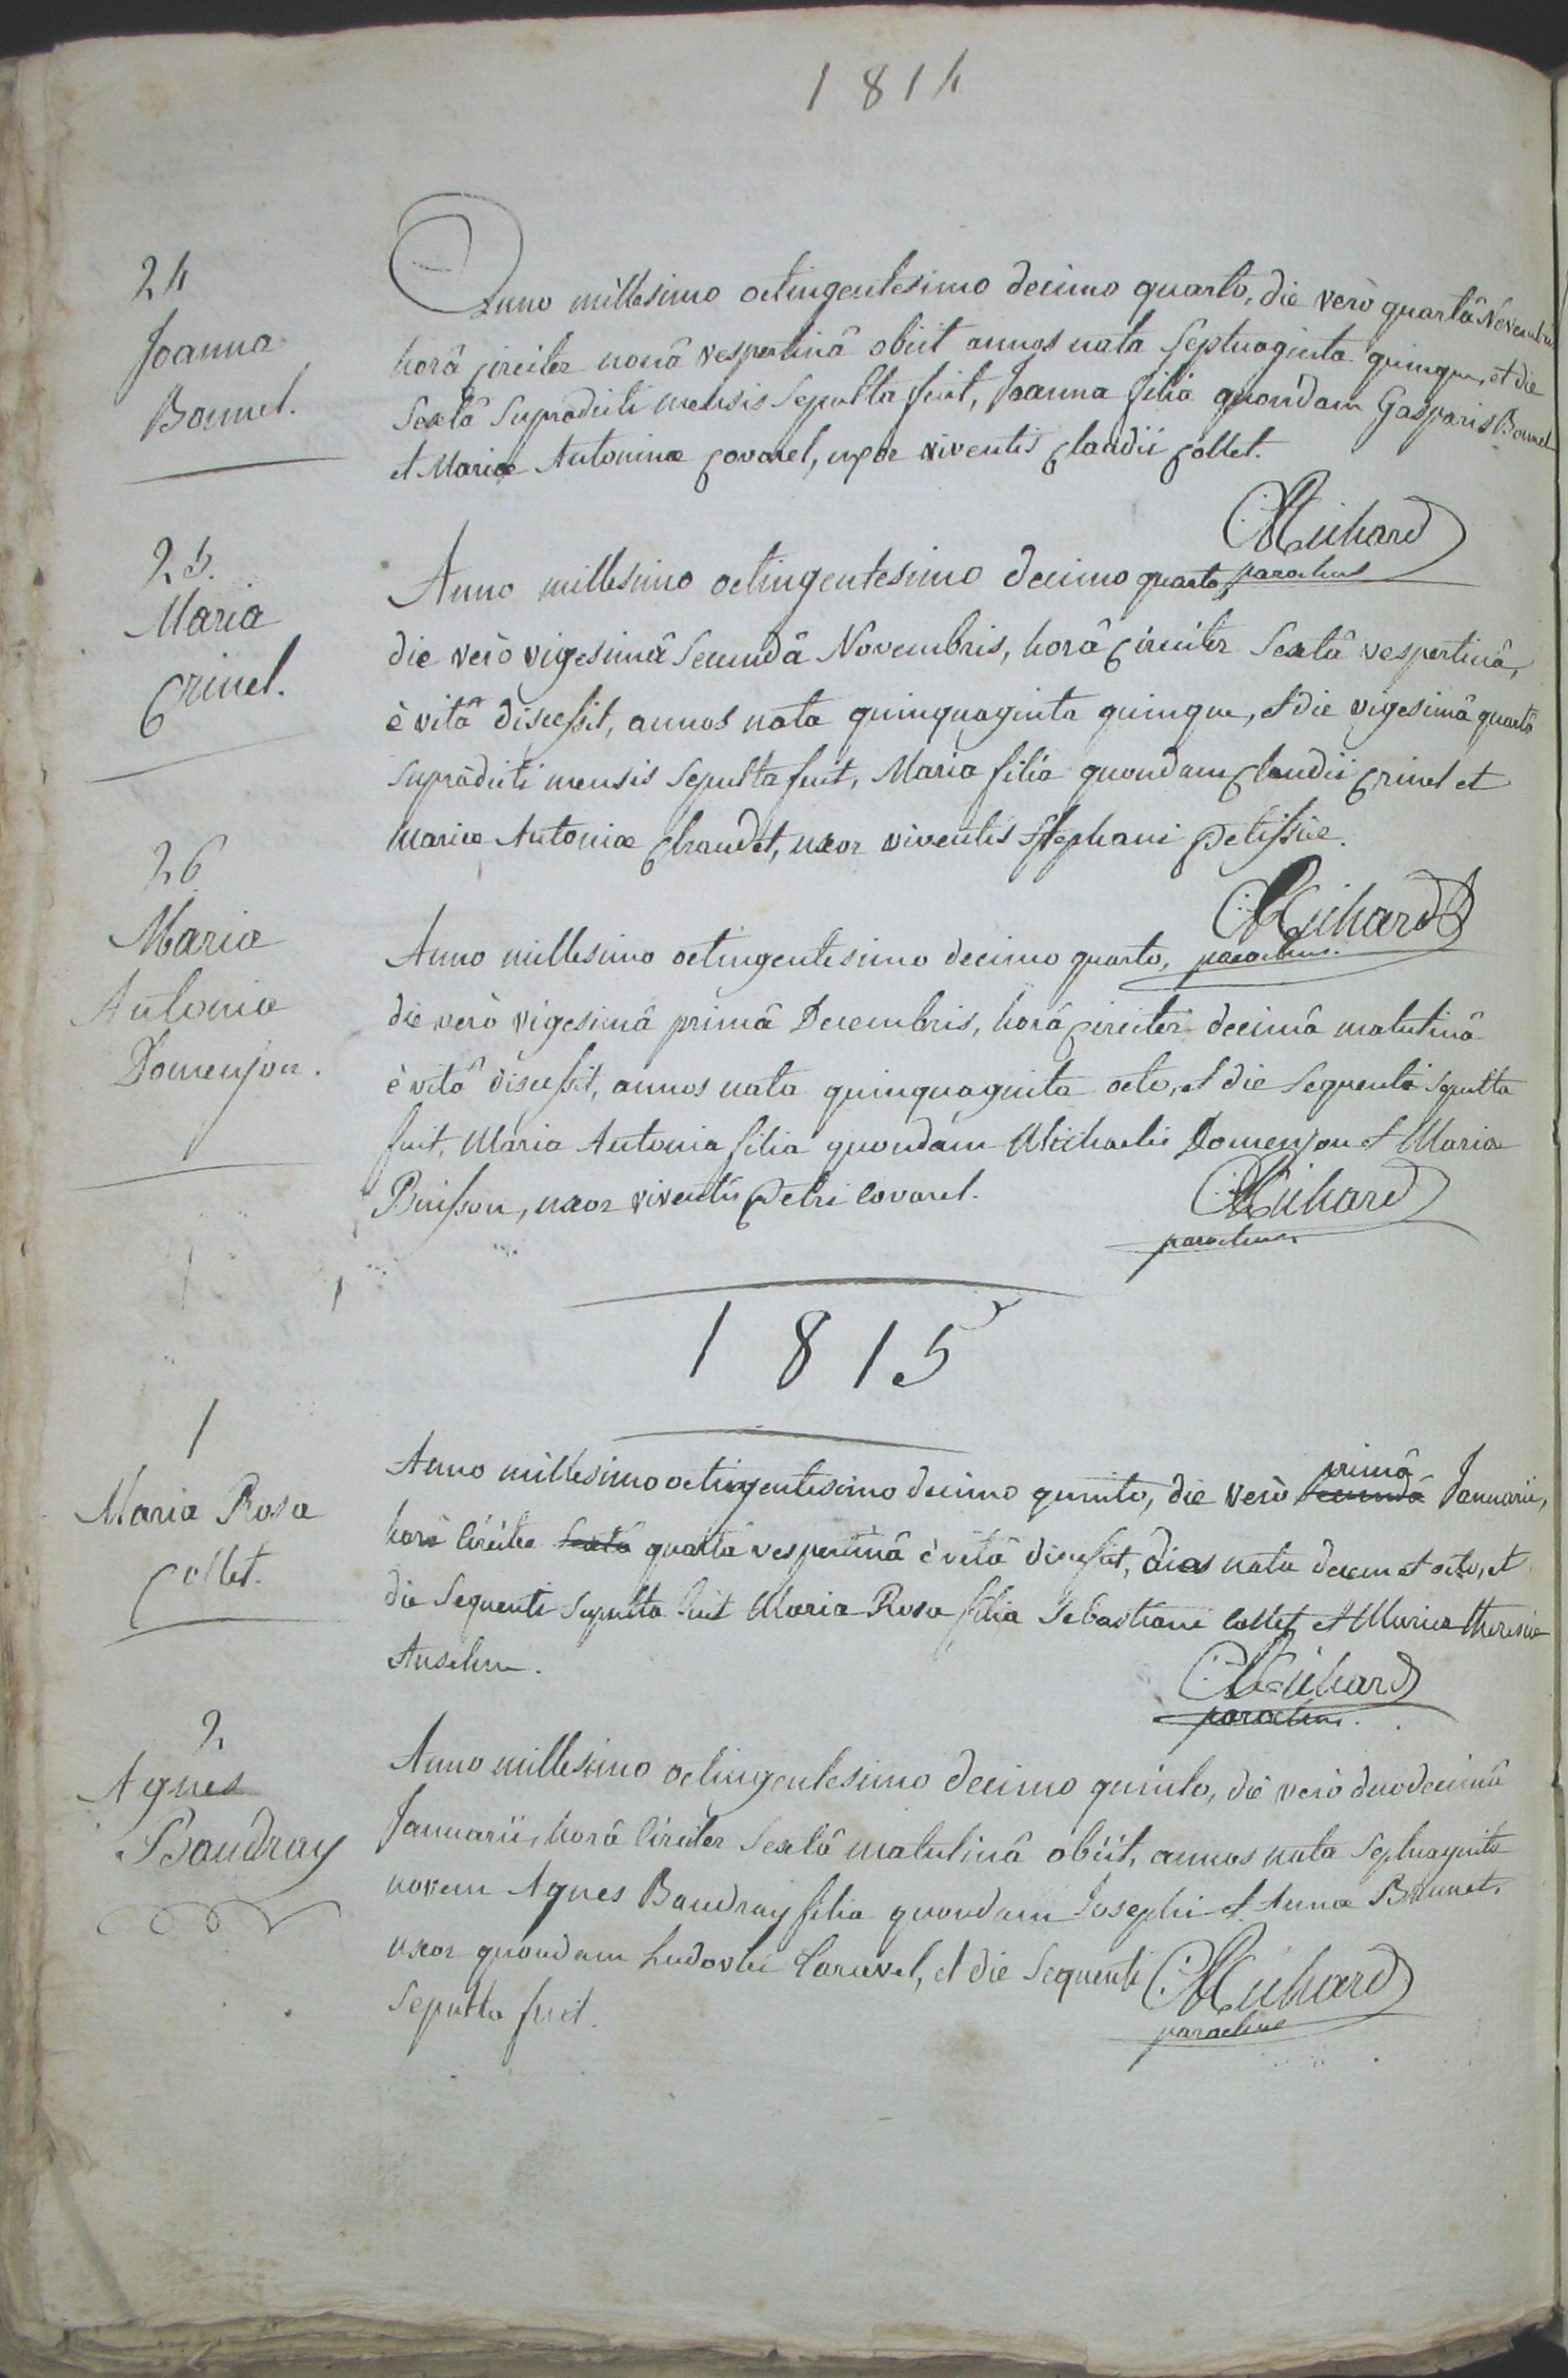 1814
24
Joanna
Bonnel.
Anno millesimo octingentesimo decimo quarto, die verò quartâ Novembris
horâ circiter nonâ vespertinâ obiit annos nata septuaginta quinque, et die
sextâ supradicti mensis sepulta fuit, Joanna filia quondam Gasparis Bonnel
et Mariæ Antoninæ Covarel, uxor viventis Claudii Collet.
Richard
parochus
25.
Maria
Crinel.
Anno millesimo octingentesimo decimo quarto,
die verò vigesimâ secundâ Novembris, horâ circiter sextâ vespertinâ,
è vitâ discessit, annos nata quinquaginta quinque, et die vigesimâ quartâ
supradicti mensis sepulta fuit, Maria filia quondam Claudii Crinel et
Mariæ Antoniæ Chaudet, uxor viventis Stephani Petissiæ.
Richard
parochus.
26
Maria
Antonia
Domenjon.
Anno millesimo octingentesimo decimo quarto,
die verò vigesimâ primâ Decembris, horâ circiter decimâ matutinâ
è vitâ discessit, annos nata quinquaginta octo, et die sequenti sepulta
fuit, Maria Antonia filia quondam Michaelis Domenjon et Mariæ
Buisson, uxor viventis Petri Covarel.
Richard
parochus
1815
1
Maria Rosa
Collet.
Anno millesimo octingentesimo decimo quinto, die verò secundâ primâ Januarii,
horâ circiter sextâ quartâ vespertinâ è vitâ discessit, dies nata decem et octo, et
die sequenti sepulta fuit Maria Rosa filia Sebastiani Collet et Mariæ Theresiæ
Anselme.
Richard
parochus.
2
Agnes
Baudray
Anno millesimo octingentesimo decimo quinto, die verò duodecimâ
Januarii, horâ circiter sextâ matutinâ obiit, annos nata septuaginta
novem Agnes Baudray filia quondam Josephi et Annæ Brunet,
uxor quondam Ludovici Carrevel, et die sequenti
sepulta fuit.
Richard
parochus